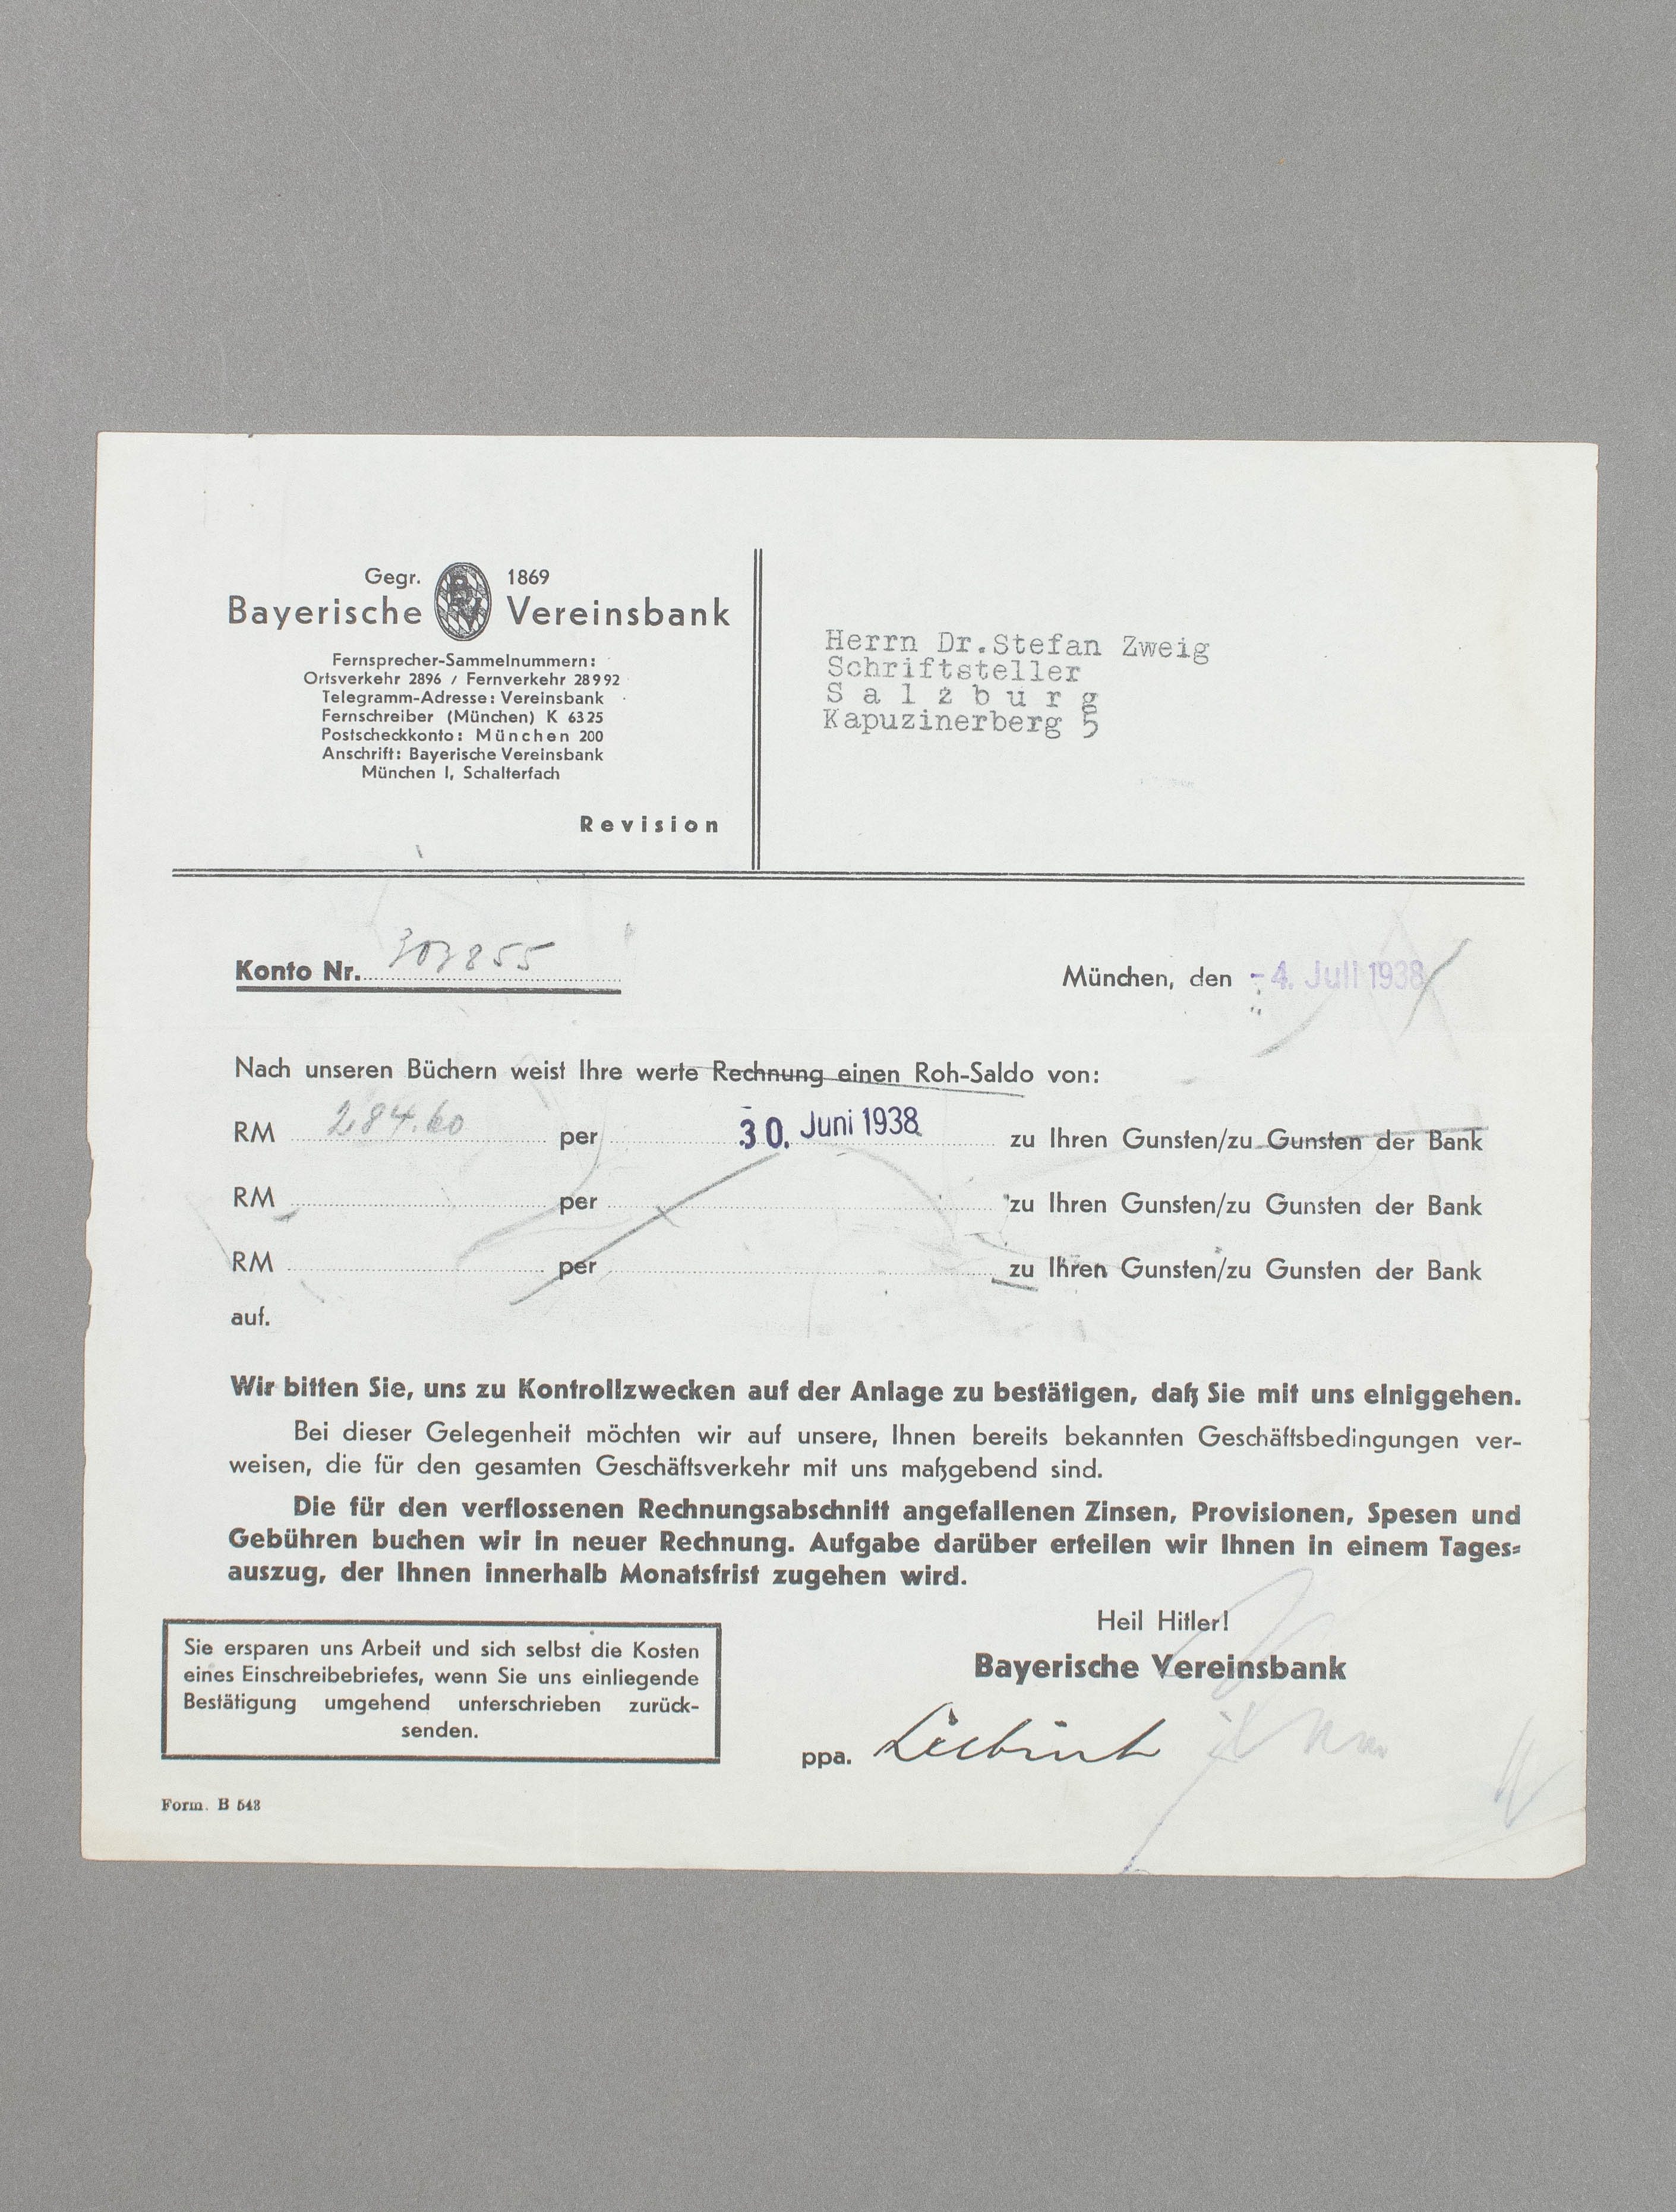 Gegr. 1869
Bayerische Vereinsbank
Fernsprecher-Sammelnummern:
Ortsverkehr 2896 / Fernverkehr 28992
Telegramm-Adresse: Vereinsbank
Fernschreiber (München) K 6325
Postscheckkonto: München 200
Anschrift: Bayerische Vereinsbank
München I, Schalterfach
Revision
Herrn Dr.Stefan Zweig
Schriftsteller
S a l z b u r g
Kapuzinerberg 5
Konto Nr. 303855
München, den -4. Juli 1938
Nach unseren Büchern weist Ihre werte Rechnung einen Roh-Saldo von:
RM 284.60 per 30. Juni 1938 zu Ihren Gunsten/zu Gunsten der Bank
RM per zu Ihren Gunsten/zu Gunsten der Bank
RM per zu Ihren Gunsten/zu Gunsten der Bank
auf.
Wir bitten Sie, uns zu Kontrollzwecken auf der Anlage zu bestätigen, daß Sie mit uns einiggehen.
Bei dieser Gelegenheit möchten wir auf unsere, Ihnen bereits bekannten Geschäftsbedingungen ver-
weisen, die für den gesamten Geschäftsverkehr mit uns maßgebend sind.
Die für den verflossenen Rechnungsabschnitt angefallenen Zinsen, Provisionen, Spesen und
Gebühren buchen wir in neuer Rechnung. Aufgabe darüber erteilen wir Ihnen in einem Tages-
auszug, der Ihnen innerhalb Monatsfrist zugehen wird.
Heil Hitler!
Bayerische Vereinsbank
ppa.
Sie ersparen uns Arbeit und sich selbst die Kosten
eines Einschreibebriefes, wenn Sie uns einliegende
Bestätigung umgehend unterschrieben zurück-
senden.
Form. B 543